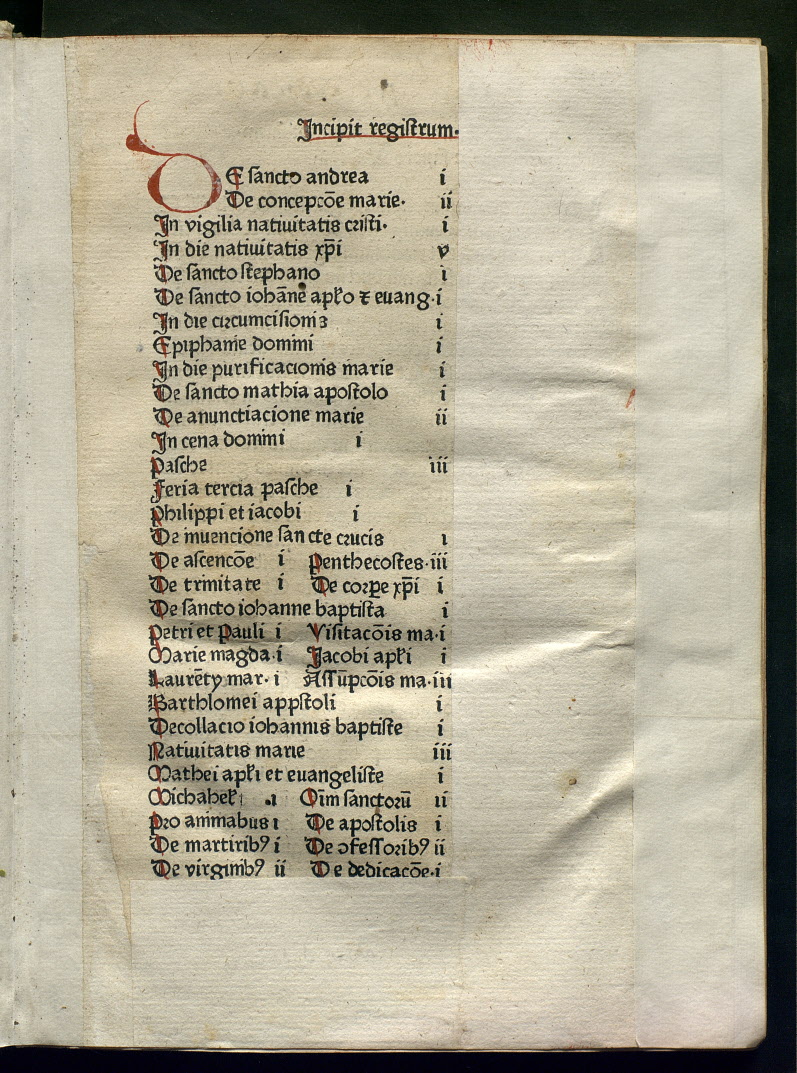 Incipit registrum.
DE sancto andrea i
De concepcōe marie. ii
In vigilia natiuitatis cristi. i
In die natiuitatis xp̄i v
De sancto stephano i
De sancto iohāne apl̄o ⁊ euang. i
In die circumcisionꝫ i
Epiphanie domini i
In die purificacionis marie i
De sancto mathia apostolo i
De anunctiacione marie ii
In cena domini i
Pasche iii
Feria tercia pasche i
Philippi et iacobi i
De inuencione sancte crucis i
De ascencōe i Penthecostes. iii
De trinitate i De corꝑe xp̄i i
De sancto iohanne baptista i
Petri et Pauli i Visitacōis ma. i
Marie magda. i Jacobi apl̄i i
Laurēty mar. i Assūpcōis ma. iii
Barthlomei appstoli i
Decollacio iohannis baptiste i
Natiuitatis marie iii
Mathei apl̄i et euangeliste i
Michahel̄ .i Oīm sanctorū ii
Pro animabus i De apostolis i
De martiribꝰ i De ↄfessoribꝰ ii
De virginibꝰ ii De dedicacōe. i